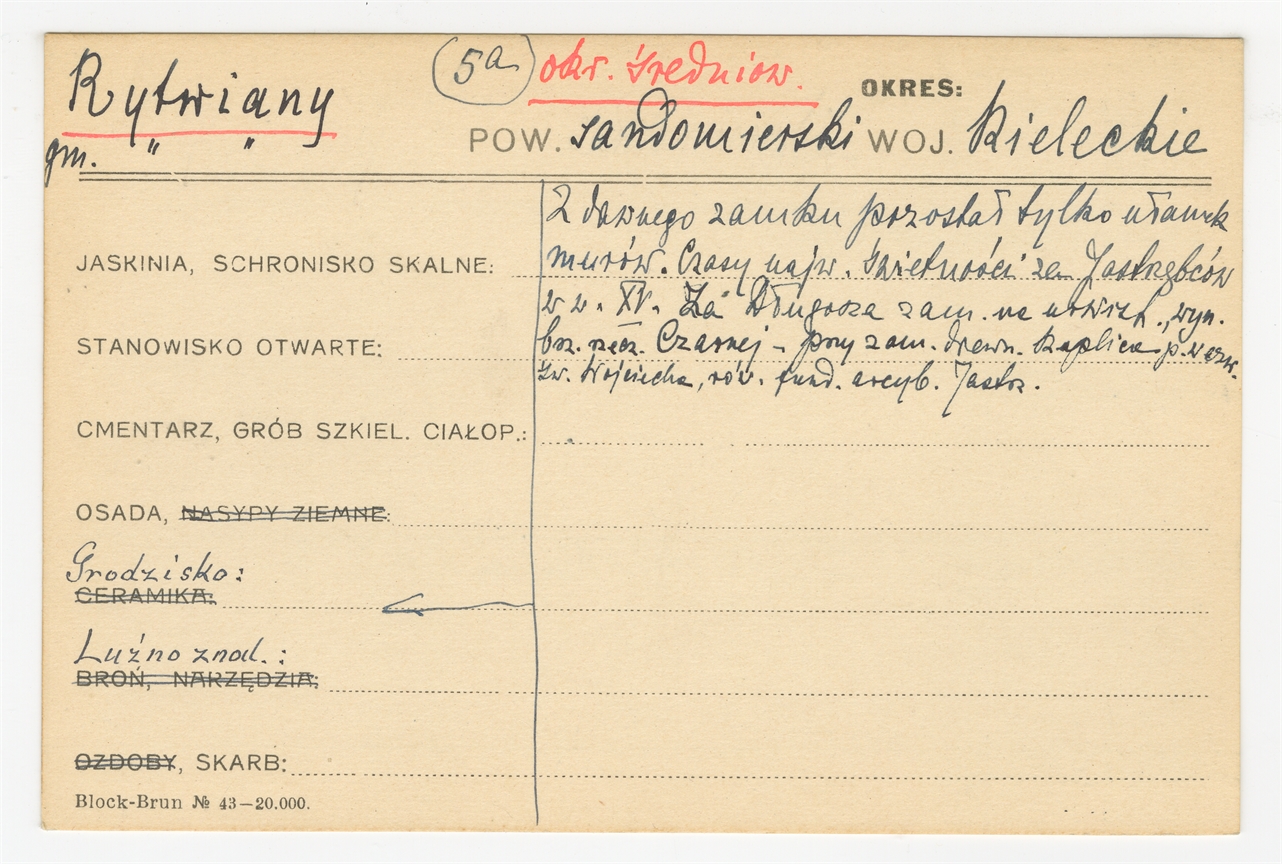 Rytwiany
(5a) okr. średniow.
OKRES:
gm. " "
POW. sandomierski WOJ. Kieleckie
Z dawnego zamku pozostał tylko ułamek
murów. Czasy najw. świetności za Jastrzębców
w w. XV. Za Długosza zam. na
Czarnej – przy zam. drewn. kaplica p. wezw.
św. Wojciecha, rów. fund. arcyb. Jastrz.
JASKINIA, SCHRONISKO SKALNE:
STANOWISKO OTWARTE:
CMENTARZ, GRÓB SZKIEL. CIAŁOP.:
OSADA, NASYPY ZIEMNE:
Grodzisko:
CERAMIKA:
Luźno znal.:
BROŃ, NARZĘDZIA:
OZDOBY, SKARB:
Block-Brun № 43—20.000.